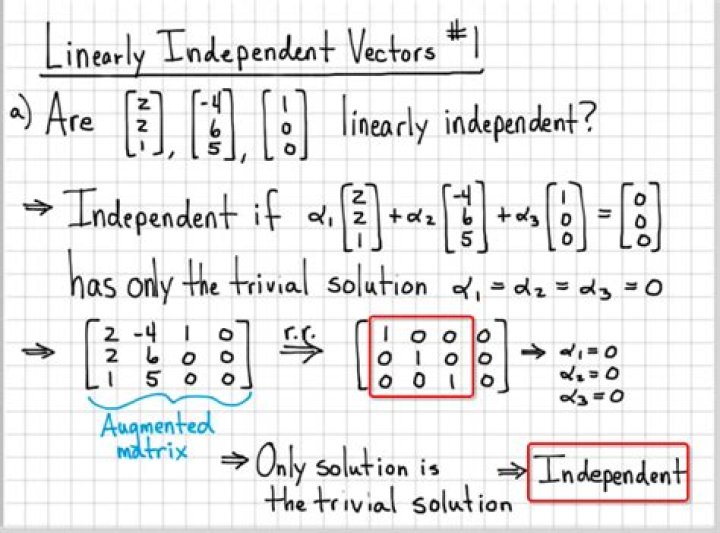 Linearly Independent Vectors #1
a) Are [2 2 1], [-4 6 5], [1 0 0] linearly independent?
⇒ Independent if α₁[2 2 1] + α₂[-4 6 5] + α₃[1 0 0] = [0 0 0]
has only the trivial solution α₁ = α₂ = α₃ = 0
⇒ [2 -4 1 0 r.r. ⇒ [1 0 0 0 ⇒ α₁ = 0
2 6 0 0 0 1 0 0 α₂ = 0
1 5 0 0] 0 0 1 0] α₃ = 0
Augmented
matrix
⇒ Only solution is ⇒ Independent
the trivial solution